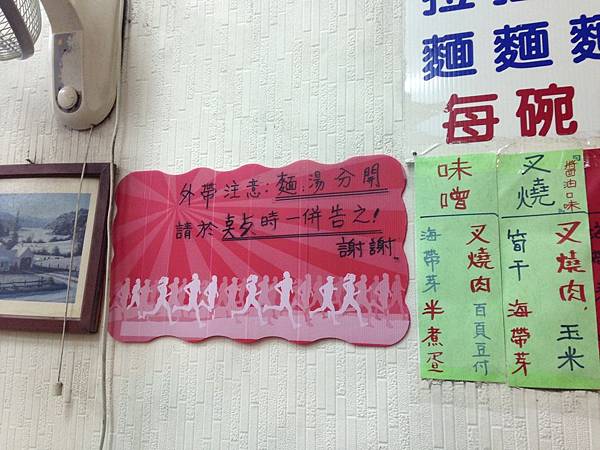 外帶注意:麵,湯分開
請於點時一併告之!
謝謝
麵麵麵
每碗
味噌
叉燒肉 百頁豆付
海帶芽 半煮蛋
醬油口味
叉燒
叉燒肉, 玉米
筍干 海帶芽